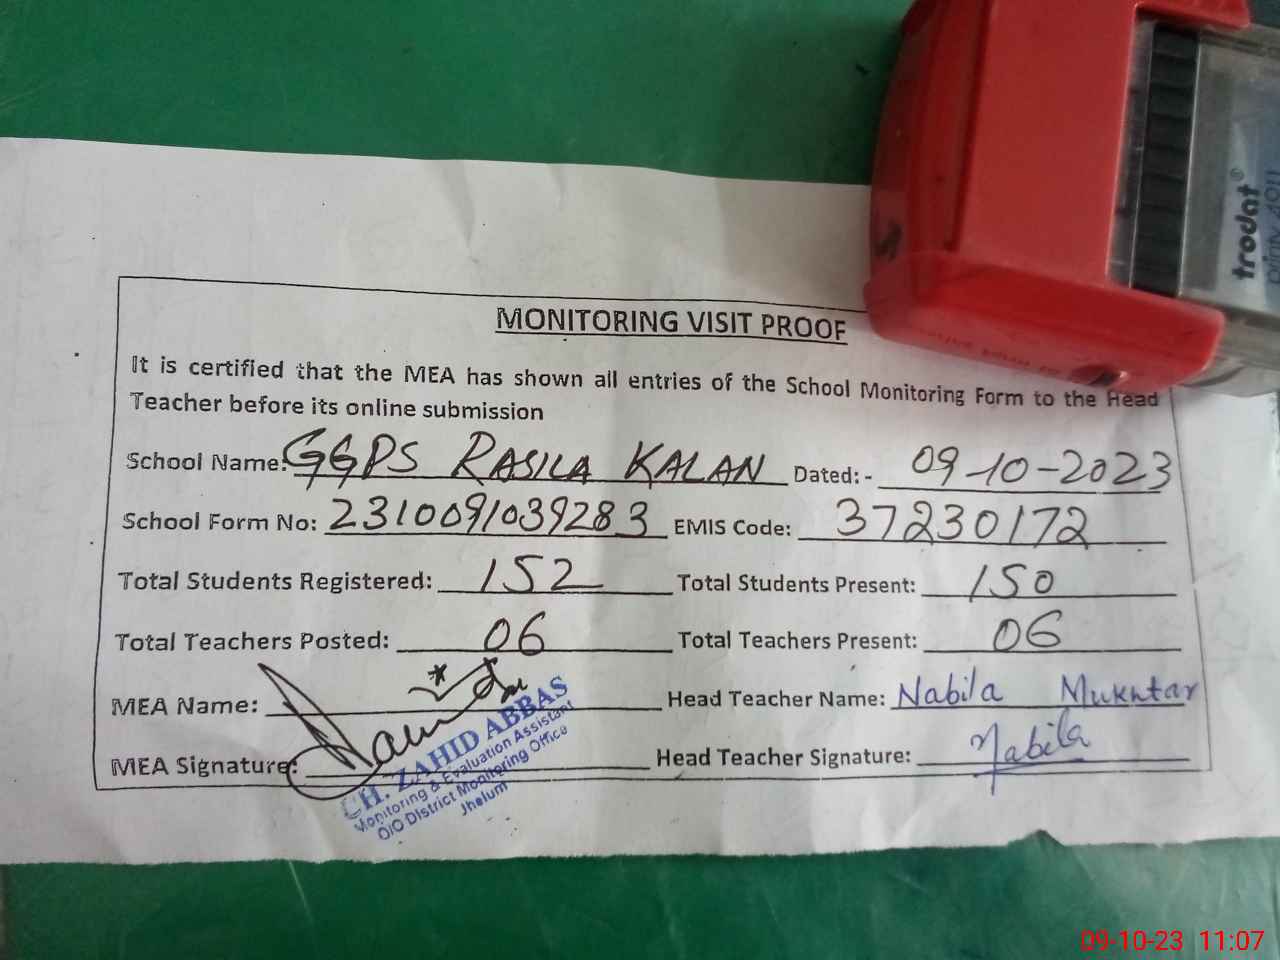 trodat®
printy 4911
MONITORING VISIT PROOF
It is certified that the MEA has shown all entries of the School Monitoring Form to the Head
Teacher before its online submission
School Name: GGPS RASILA KALAN Dated: - 09-10-2023
School Form No: 2310091039283 EMIS Code: 37230172
Total Students Registered: 152 Total Students Present: 150
Total Teachers Posted: 06 Total Teachers Present: 06
MEA Name: Head Teacher Name: Nabila Mukhtar
MEA Signature: Head Teacher Signature: Nabila
CH. ZAHID ABBAS
Monitoring & Evaluation Assistant
O/O District Monitoring Office
Jhelum
09-10-23 11:07